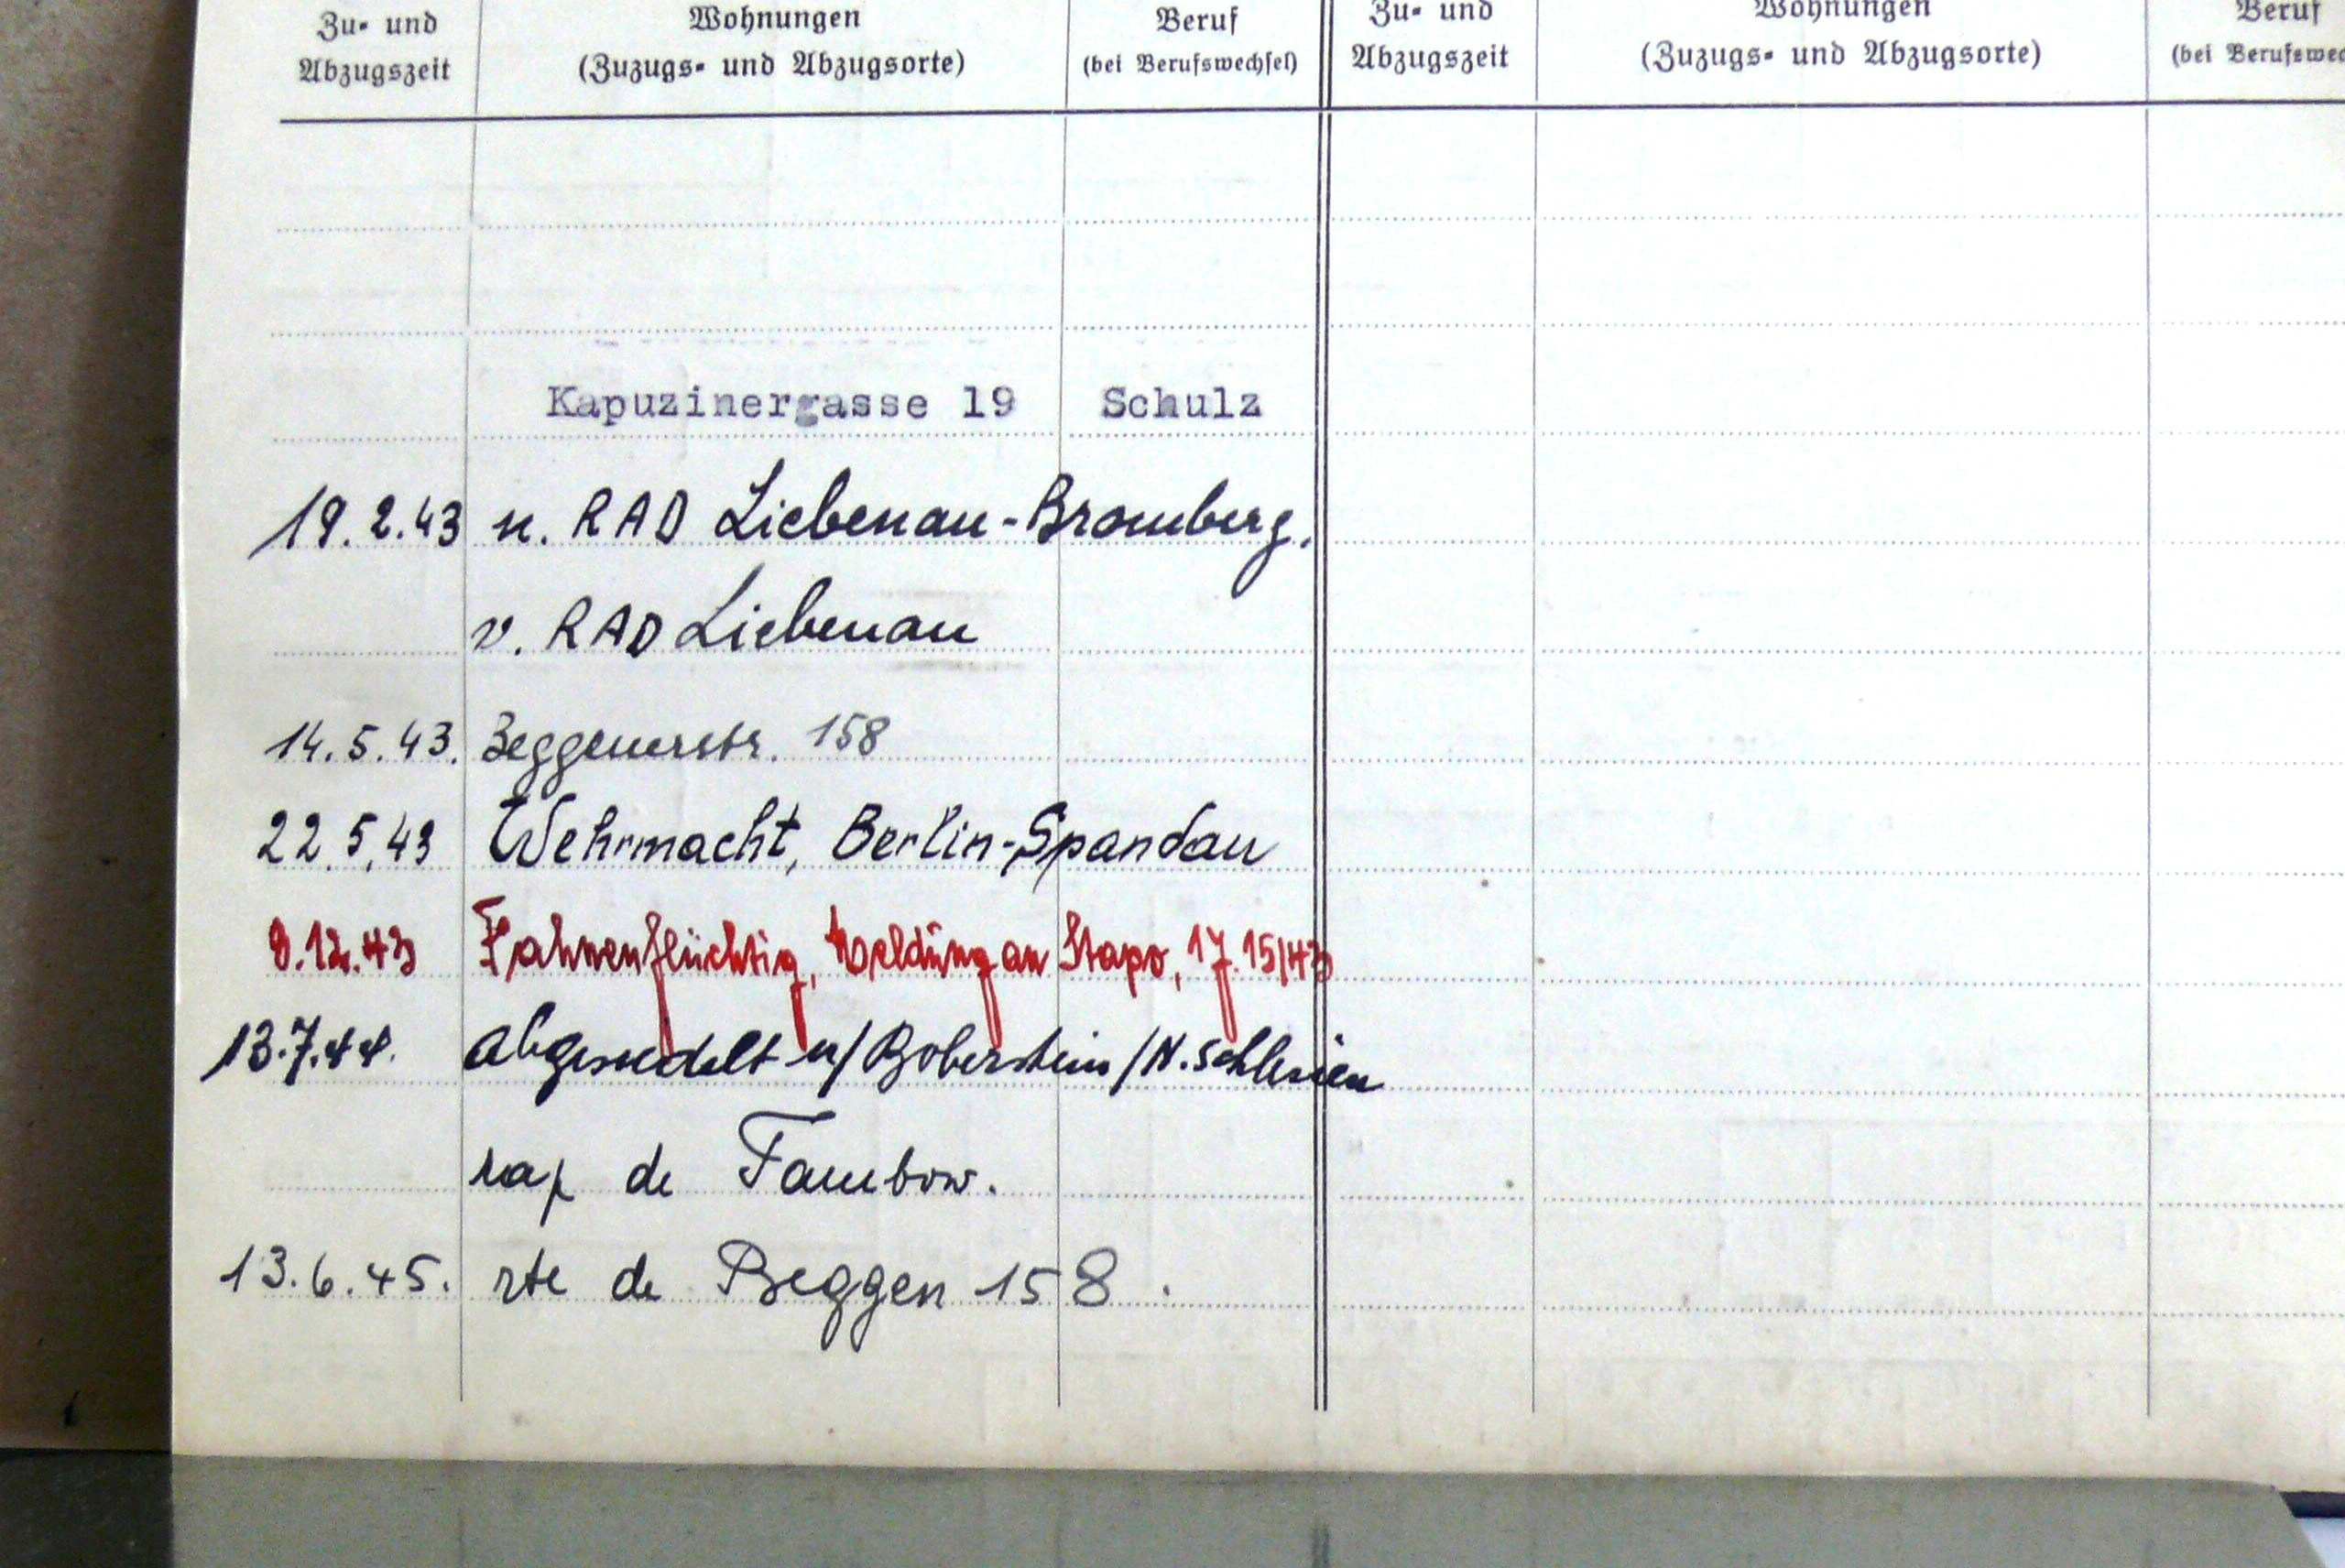 Zu- und Wohnungen Beruf Zu- und Wohnungen Beruf
Abzugszeit (Zuzugs- und Abzugsorte) (bei Berufswechsel) Abzugszeit (Zuzugs- und Abzugsorte) (bei Berufswec
Kapuzinergasse 19 Schulz
19.2.43 n. RAD Liebenau-Bromberg.
v. RAD Liebenau
14.5.43. Beggenerstr. 158
22.5.43 Wehrmacht, Berlin-Spandau
8.12.43 Fahnenflüchtig, Meldung an Stapo, 17.15/43
13.7.44. abgesiedelt n/ Boberstein/N.schlesien
rap de Tambow.
13.6.45. rte de Beggen 158.